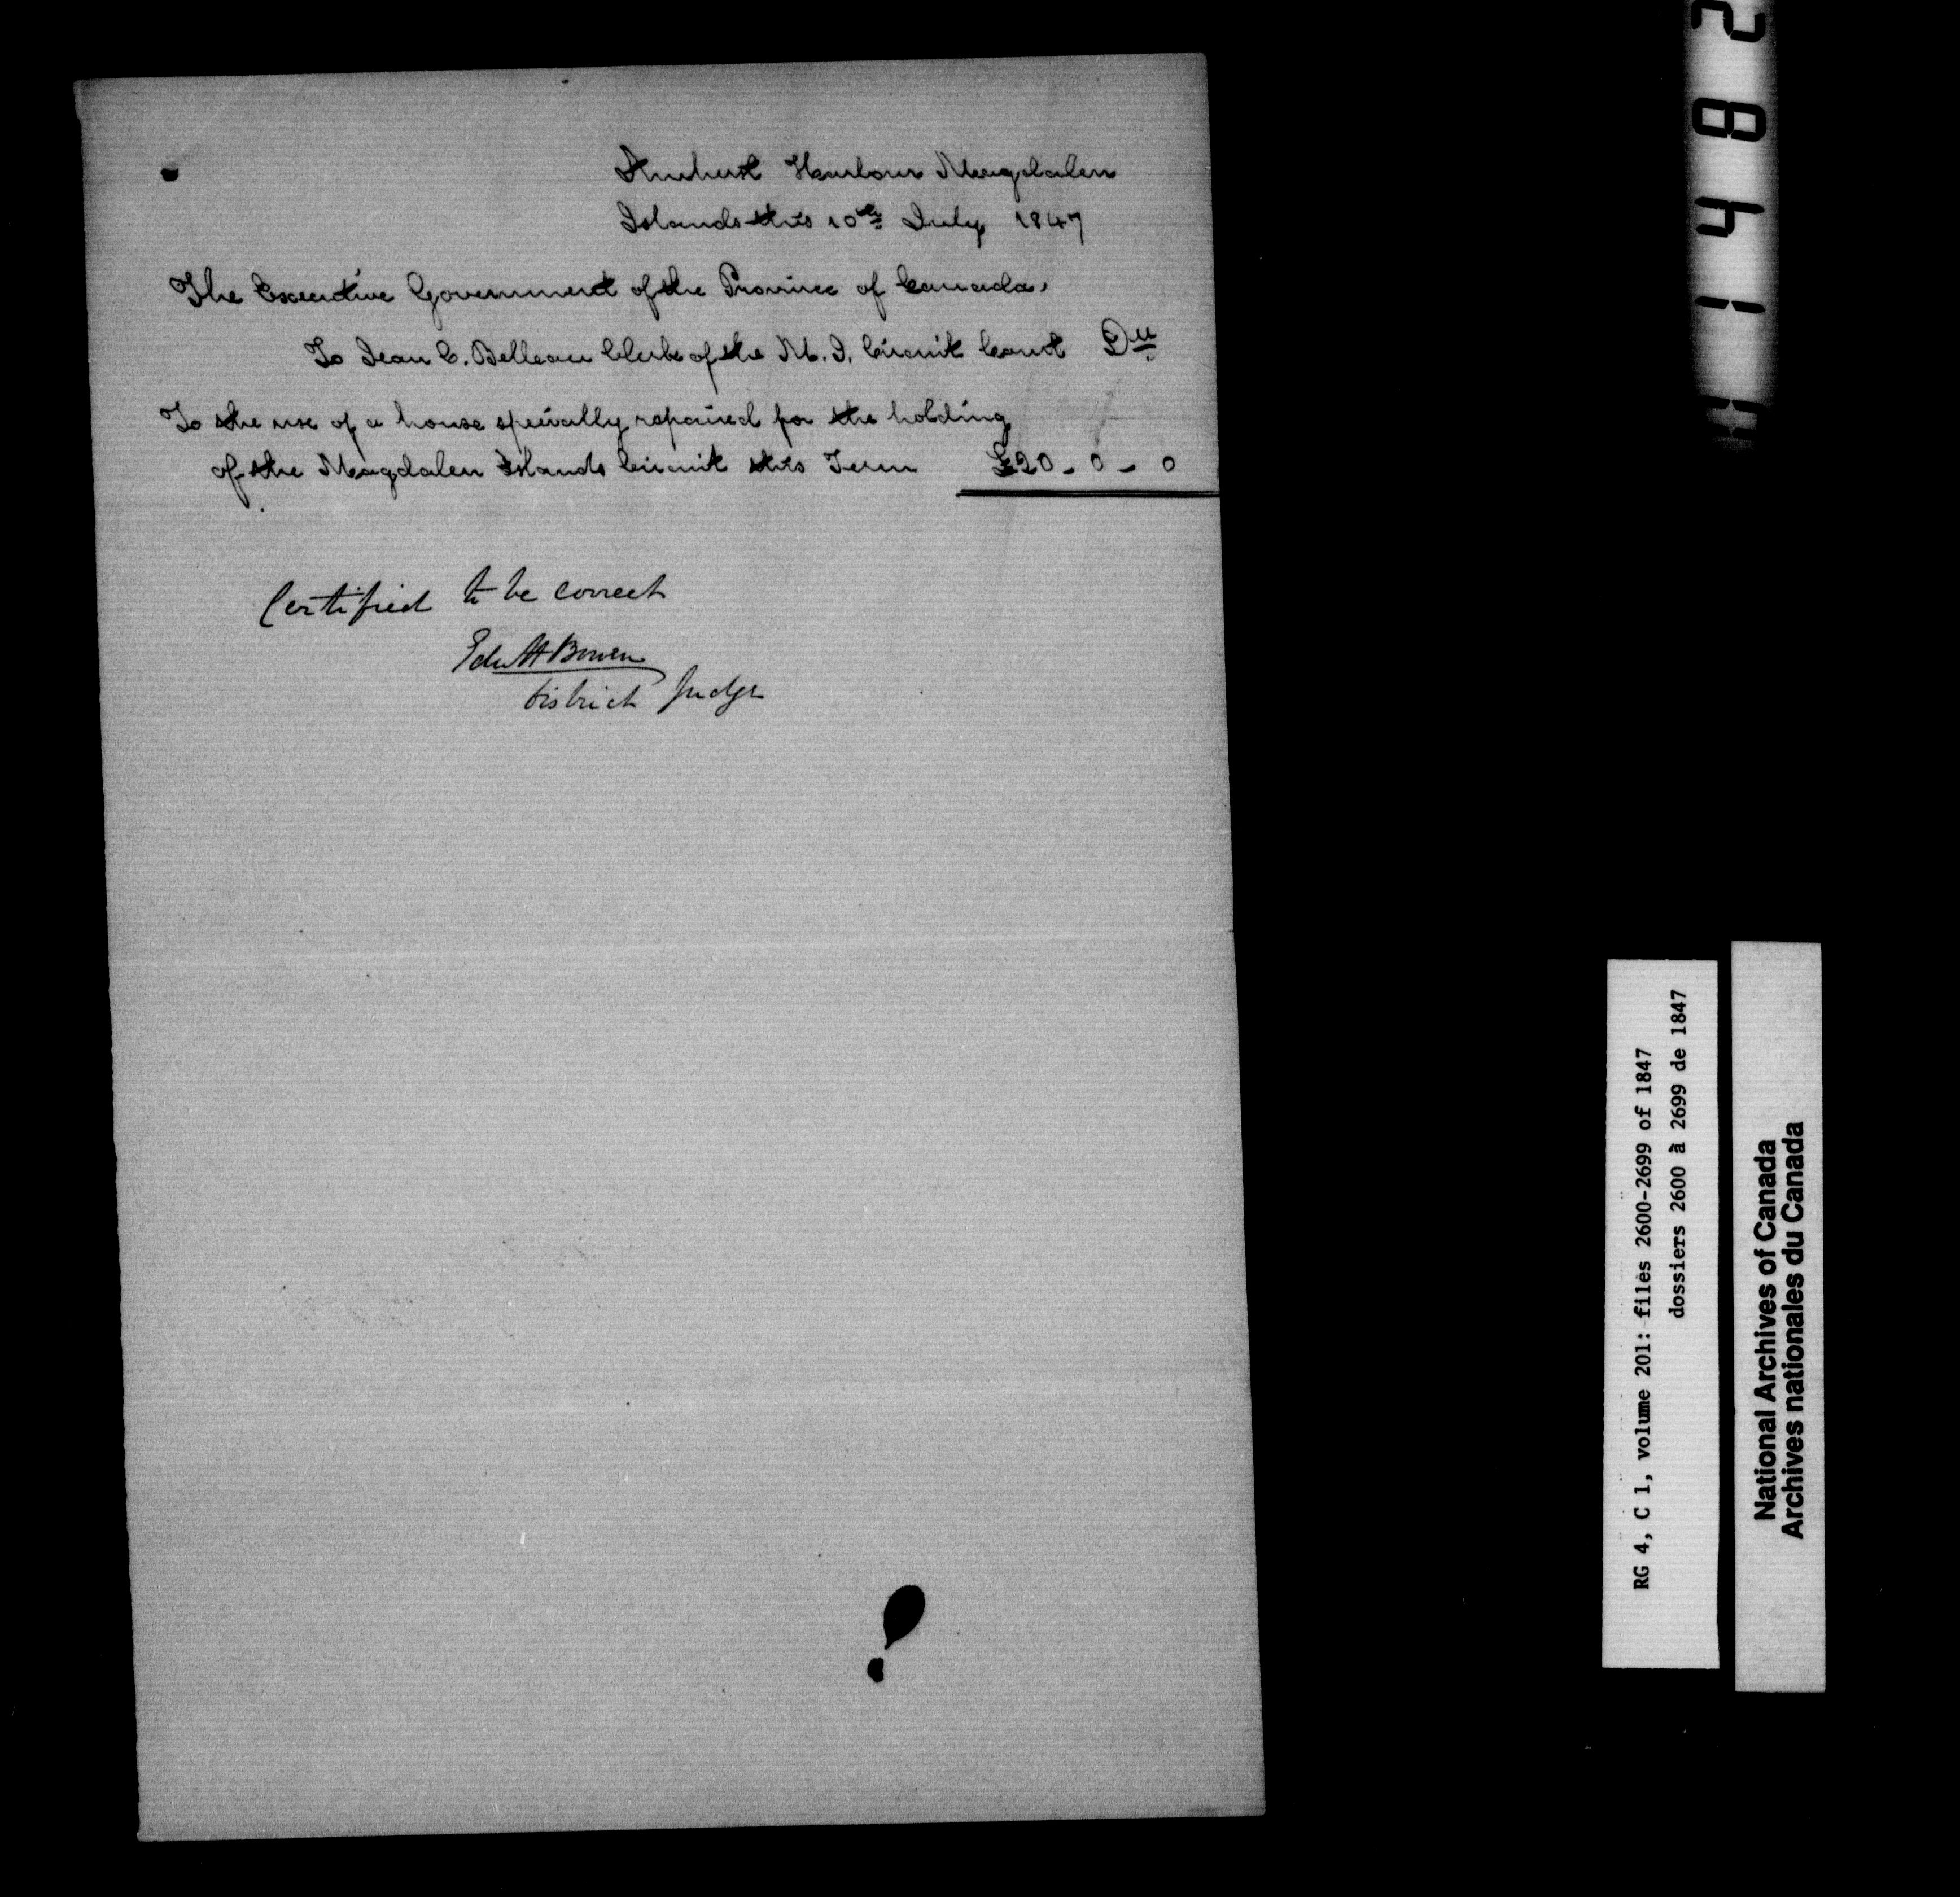 Amherst Harbour Magdalen
Islands this 10th July 1847
The Executive Government of the Province of Canada,
To Jean C. Belleau Clerk of the M. I. Circuit Court Dr
To the use of a house specially repaired for the holding
of the Magdalen Islands Circuit this Term £20 - 0 - 0
Certified to be correct
Edw H Bowen
District Judge
2841
RG 4, C 1, volume 201: files 2600-2699 of 1847
dossiers 2600 à 2699 de 1847
National Archives of Canada
Archives nationales du Canada